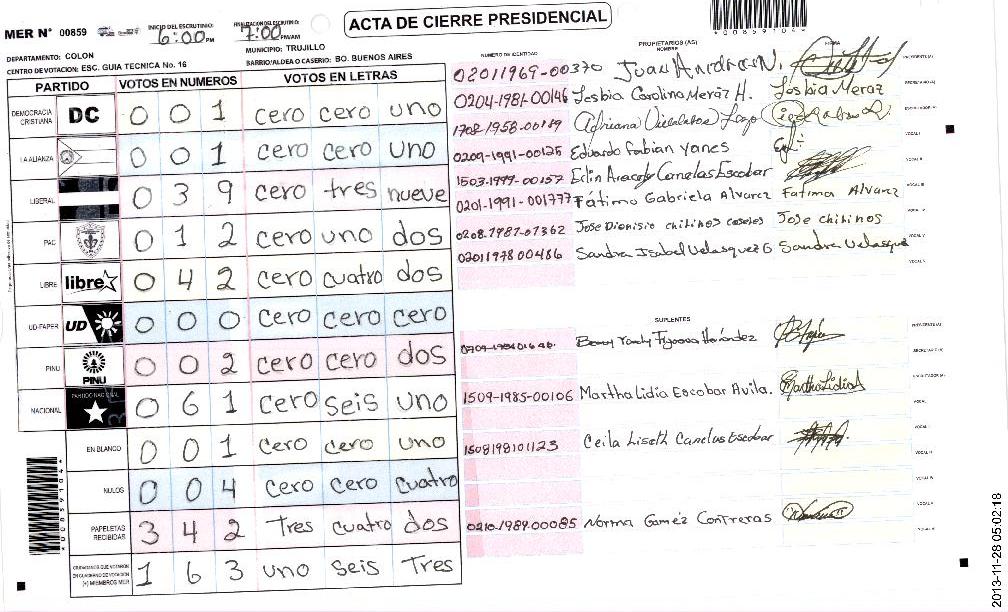 MER N° 00859 INICIO DEL ESCRUTINIO: 6:00 PM FINALIZACION DEL ESCRUTINIO: 7:00 PM/AM ACTA DE CIERRE PRESIDENCIAL *00859104*
DEPARTAMENTO: COLON MUNICIPIO: TRUJILLO
CENTRO DE VOTACION: ESC. GUIA TECNICA No. 16 BARRIO/ALDEA O CASERIO: BO. BUENOS AIRES
PARTIDO VOTOS EN NUMEROS VOTOS EN LETRAS
DEMOCRACIA CRISTIANA DC 0 0 1 cero cero uno
LA ALIANZA 0 0 1 cero cero uno
LIBERAL 0 3 9 cero tres nueve
PAC 0 1 2 cero uno dos
LIBRE libre 0 4 2 cero cuatro dos
UD-FAPER UD 0 0 0 cero cero cero
PINU PINU 0 0 2 cero cero dos
NACIONAL PARTIDO NACIONAL 0 6 1 cero seis uno
EN BLANCO 0 0 1 cero cero uno
NULOS 0 0 4 cero cero cuatro
PAPELETAS RECIBIDAS 3 4 2 Tres cuatro dos
CIUDADANOS QUE VOTARON EN CUADERNO DE VOTACION (+) MIEMBROS MER 1 6 3 uno seis Tres
PROPIETARIOS (AS)
NUMERO DE IDENTIDAD NOMBRE FIRMA
02011969-00370 Juan
0204-1981-00146 Lesbia Carolina Meraz H. Lesbia Meraz
1702-1958-00189 Adriana
0209-1991-00125 Eduardo Fabian Yanes
1503-1999-00157 Canelas Escobar
0201-1991-001777 Fátima Gabriela Alvarez Fatima Alvarez
0208-1987-07362 Jose Dionisio chilinos Jose chilinos
02011978 00486 Sandra Isabel Velasquez G Sandra Velasquez
SUPLENTES
Hernández
1509-1985-00106 Martha Lidia Escobar Avila. Martha Lidia
1508198101123 Ceila Liseth Canelas Escobar
0210-1989-00085 Norma Gaméz Contreras
2013-11-28 05:02:18